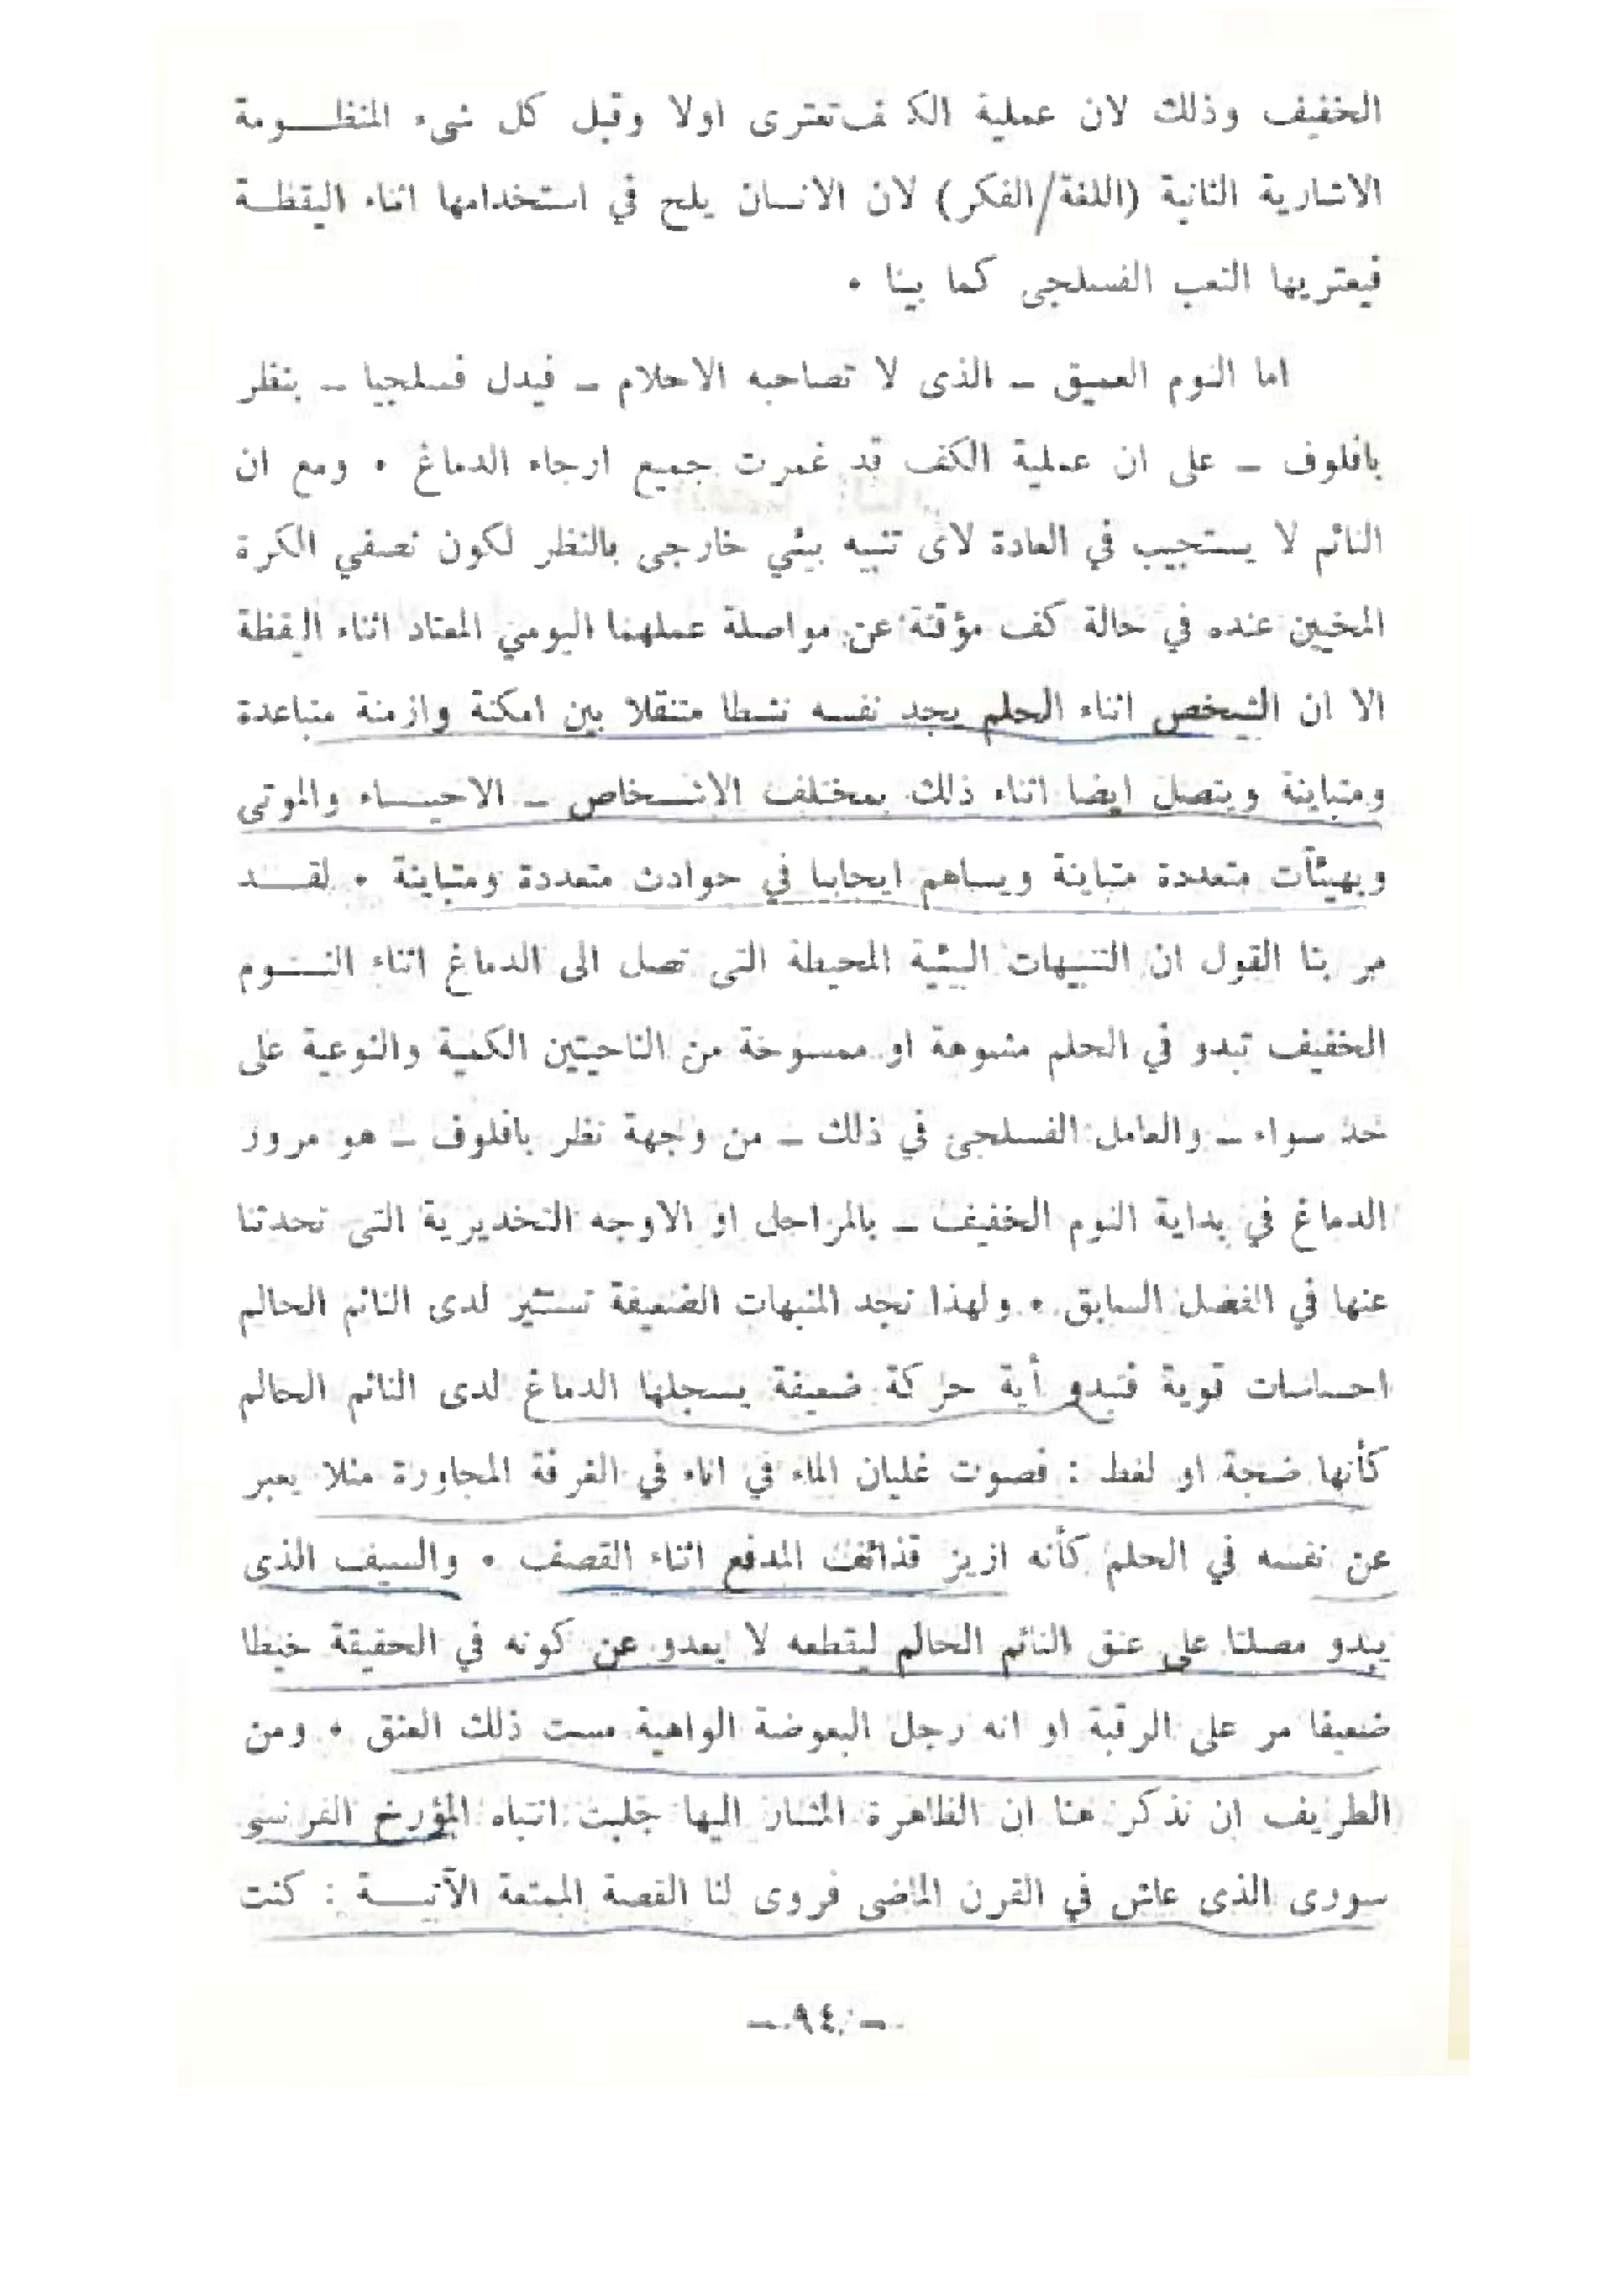 الخفيف وذلك لان عملية الكف تعترى اولا وقبل كل شىء المنظومة
الاشارية الثانية (اللغة/الفكر) لان الانسان يلح في استخدامها اثناء اليقظة
فيعتريها التعب الفسلجى كما بينا •
اما النوم العميق – الذى لا تصاحبه الاحلام – فيدل فسلجيا – بنظر
بافلوف – على ان عملية الكف قد غمرت جميع ارجاء الدماغ • ومع ان
النائم لا يستجيب في العادة لاى تنبيه بيئي خارجى بالنظر لكون نصفي الكرة
المخيين عنده في حالة كف مؤقتة عن مواصلة عملهما اليومي المعتاد اثناء اليقظة
الا ان الشخص اثناء الحلم يجد نفسه نشطا متنقلا بين امكنة وازمنة متباعدة
ومتباينة ويتصل ايضا اثناء ذلك بمختلف الاشخاص – الاحياء والموتى
وبهيئات متعددة متباينة ويساهم ايجابيا في حوادث متعددة ومتباينة • لقد
مر بنا القول ان التنبيهات البيئية المحيطة التى تصل الى الدماغ اثناء النوم
الخفيف تبدو في الحلم مشوهة او ممسوخة من الناحيتين الكمية والنوعية على
حد سواء – والعامل الفسلجى في ذلك – من وجهة نظر بافلوف – هو مرور
الدماغ في بداية النوم الخفيف – بالمراحل او الاوجه التخديرية التى تحدثنا
عنها في الفصل السابق • ولهذا نجد المنبهات الضعيفة تستثير لدى النائم الحالم
احساسات قوية فتبدو أية حركة ضعيفة يسجلها الدماغ لدى النائم الحالم
كأنها ضجة او لغط : فصوت غليان الماء في اناء في الغرفة المجاورة مثلا يعبر
عن نفسه في الحلم كأنه ازيز قذائف المدفع اثناء القصف • والسيف الذى
يبدو مصلتا على عنق النائم الحالم ليقطعه لا يعدو عن كونه في الحقيقة خيطا
ضعيفا مر على الرقبة او انه رجل البعوضة الواهية مست ذلك العنق • ومن
الطريف ان نذكر هنا ان الظاهرة المشار اليها جلبت انتباه المؤرخ الفرنسى
سورى الذى عاش في القرن الماضى فروى لنا القصة الممتعة الآتية : كنت
– ٩٤ –